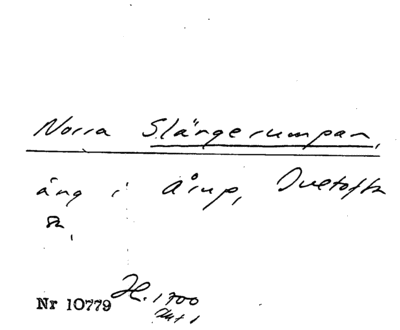 Norra Slängerumpan,
äng i Årup, Ivetofta
sn.
Nr 10779 H. 1700
akt 1